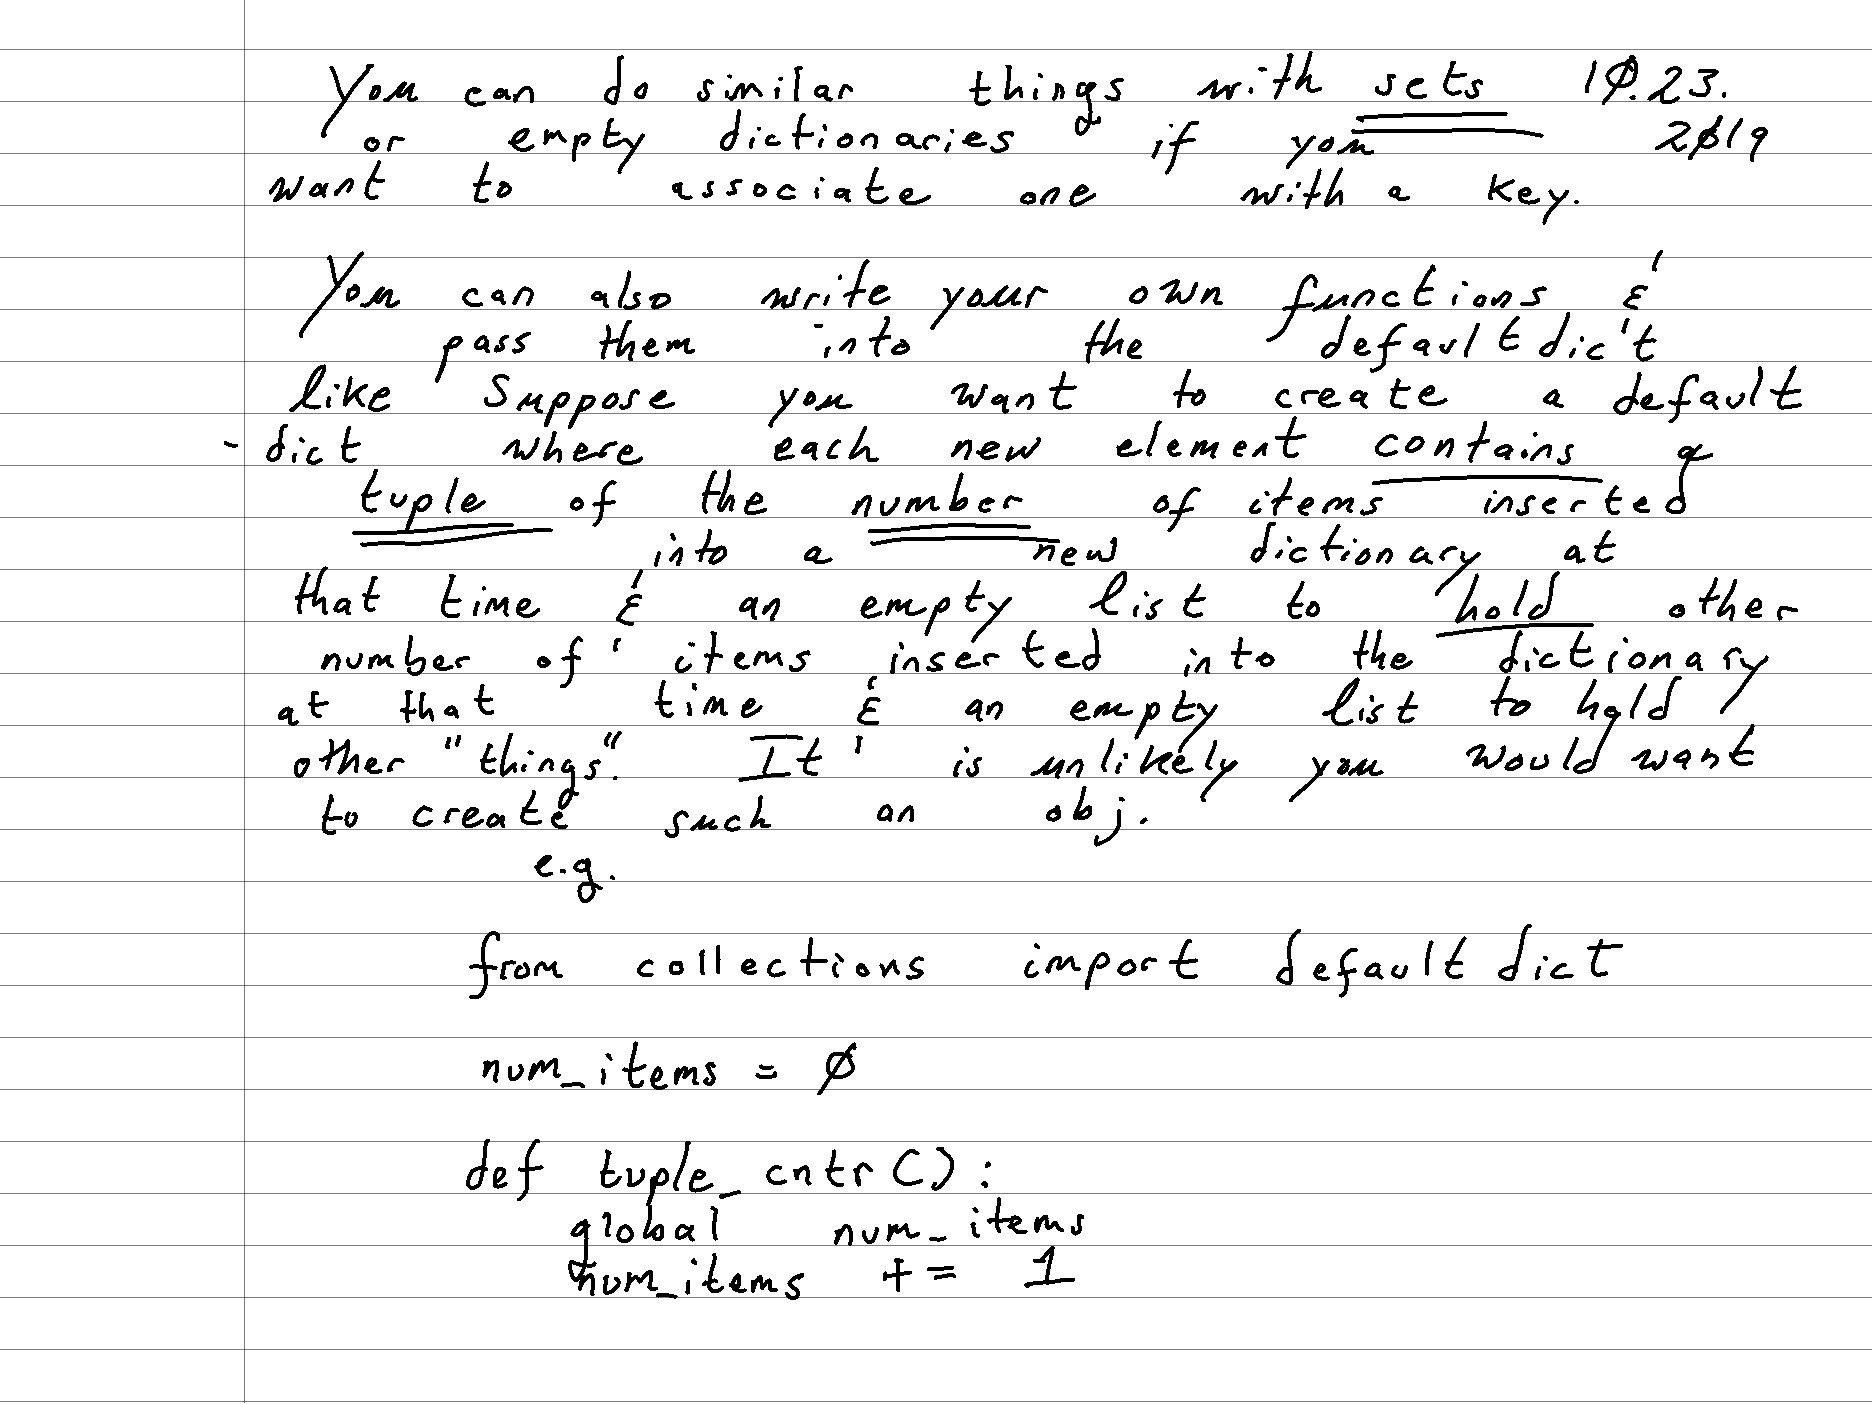 You can do similar things with sets 10.23.
or empty dictionaries if you 2019
want to associate one with a key.
You can also write your own functions &
pass them into the defaultdic't
like Suppose you want to create a default
- dict where each new element contains a
tuple of the number of items inserted
into a new dictionary at
that time & an empty list to hold other
number of items inserted into the dictionary
at that time & an empty list to hold
other "things". It is unlikely you would want
to create such an obj.
e.g.
from collections import defaultdict
num_items = 0
def tuple_cntr():
global num_items
num_items += 1